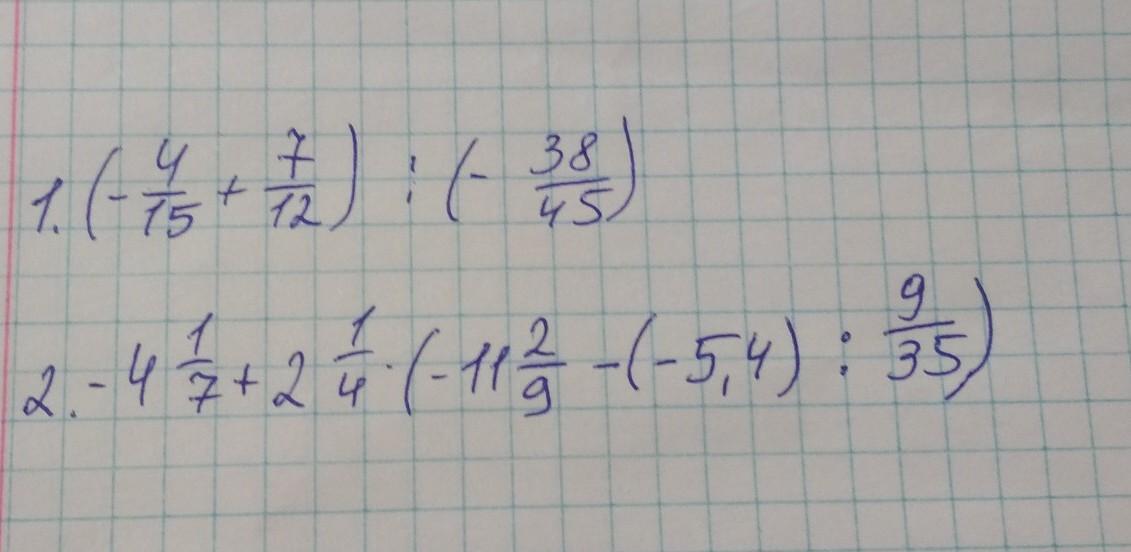 1. (- 4/15 + 7/12) : (- 38/45)
2. - 4 1/7 + 2 1/4 · (- 11 2/9 - (- 5,4) : 9/35)